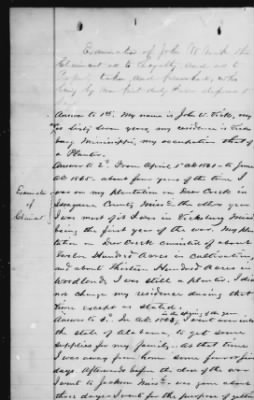 Examination of John W. Vick the
Claimant as to Loyalty and as to
Property taken and furnished, who
being by me first duly sworn deposed &
Answer to 1st. My name is John W. Vick, my
age sixty seven years, my residence is Vicks
burg Mississippi, my occupation that of
a Planter.
Answer to 2d. From April 1st 1861 to June
1st 1865. about four years of the time I
was on my plantation on Deer Creek in
Issaquena County Missi & the other year
I was most of it I was in Vicksburg Missi
being the first year of the war. My plan
tation on Deer Creek consisted of about
Twelve Hundred Acres in Cultivation,
and about Thirteen Hundred Acres in
Woodland, I was still a planter. I did
not change my residence during that
time except as stated.
in the spring of the year
Answer to 3d. In 1863, I went once into
the state of Alabama, to get some
supplies for my family. At that time
I was away from home some four or five
days. Afterwards before the close of the war
I went to Jackson Missi - was gone about
three days - I went for the purpose of getting
Examination
of
Claimant